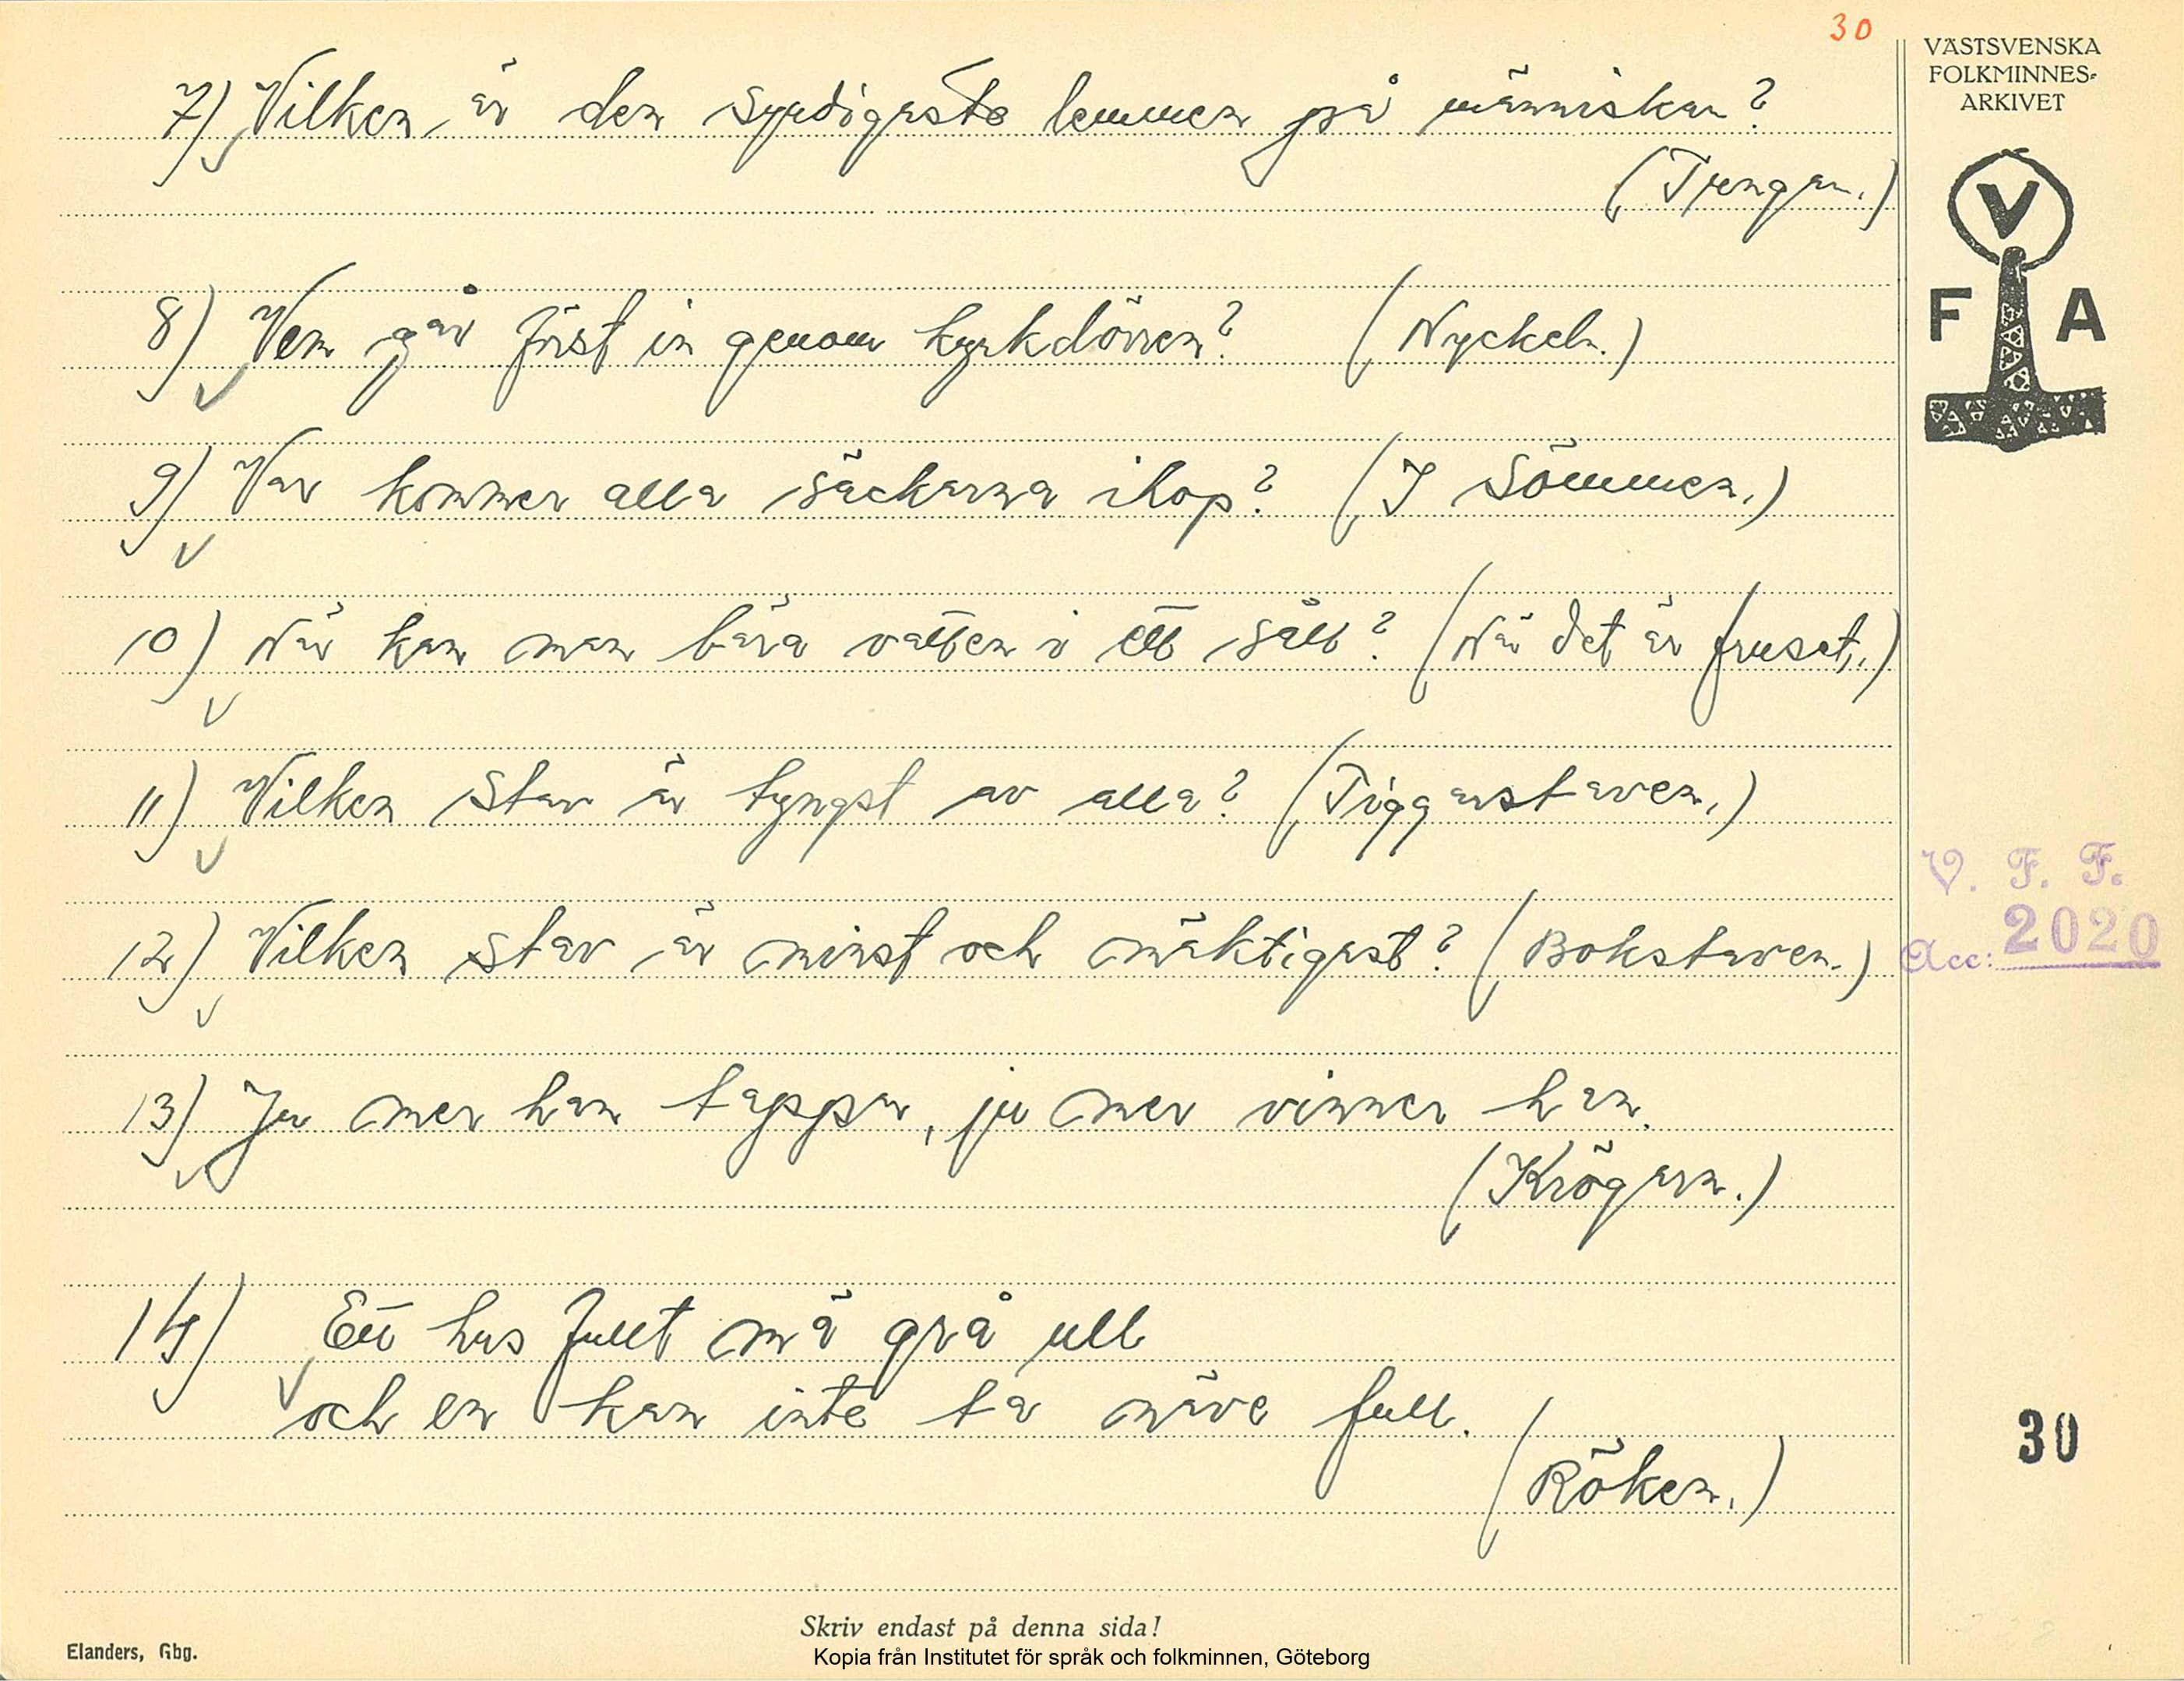 30
VÄSTSVENSKA
FOLKMINNES-
ARKIVET
V
F A
7) Vilken är den syndigaste lemmen på människan?
(Tungan.)
8) Vem går först in genom kyrkdörren? (Nyckeln.)
9) Var kommer alla säckarna ihop? (I sömmen.)
10) När kan man bära vatten i ett såll? (När det är fruset.)
11) Vilken stav är tyngst av alla? (Tiggarstaven.)
12) Vilken stav är minst och mäktigast? (Bokstaven.)
V. F. F.
Acc: 2020
13) Ju mer han tappar, ju mer vinner han.
(Krögarn.)
14) Ett hus fullt mä grå ull
och en kan inte ta näve full.
(Röken.)
30
Skriv endast på denna sida!
Elanders, Gbg.
Kopia från Institutet för språk och folkminnen, Göteborg